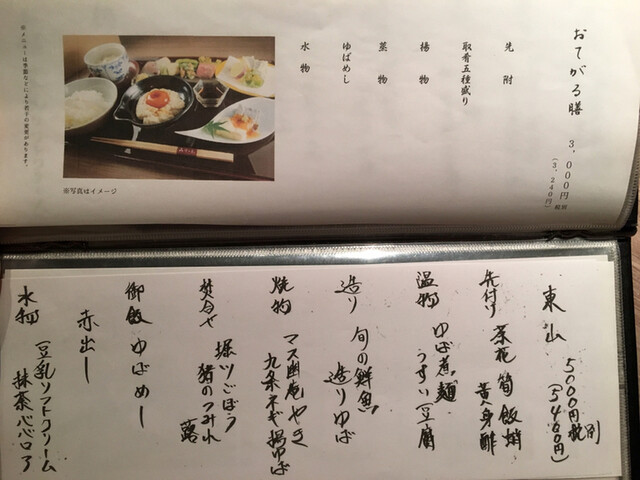 おてがる膳
3,000円 税別
(3,240円)
先附
取肴五種盛り
揚物
蒸物
ゆばめし
水物
※写真はイメージ
※メニューは季節などにより若干の変更があります。
東山
5000円税別
(5400円)
先付け 菜花 筍 飯蛸
黄身酢
温物 ゆば煮麺
うすい豆腐
造り 旬の鮮魚
造りゆば
焼物 マス幽庵やき
九条ネギ揚ゆば
焚合せ 堀川ごぼう
猪のつみれ
蕗
御飯 ゆばめし
赤出し
水物 (豆乳ソフトクリーム
抹茶